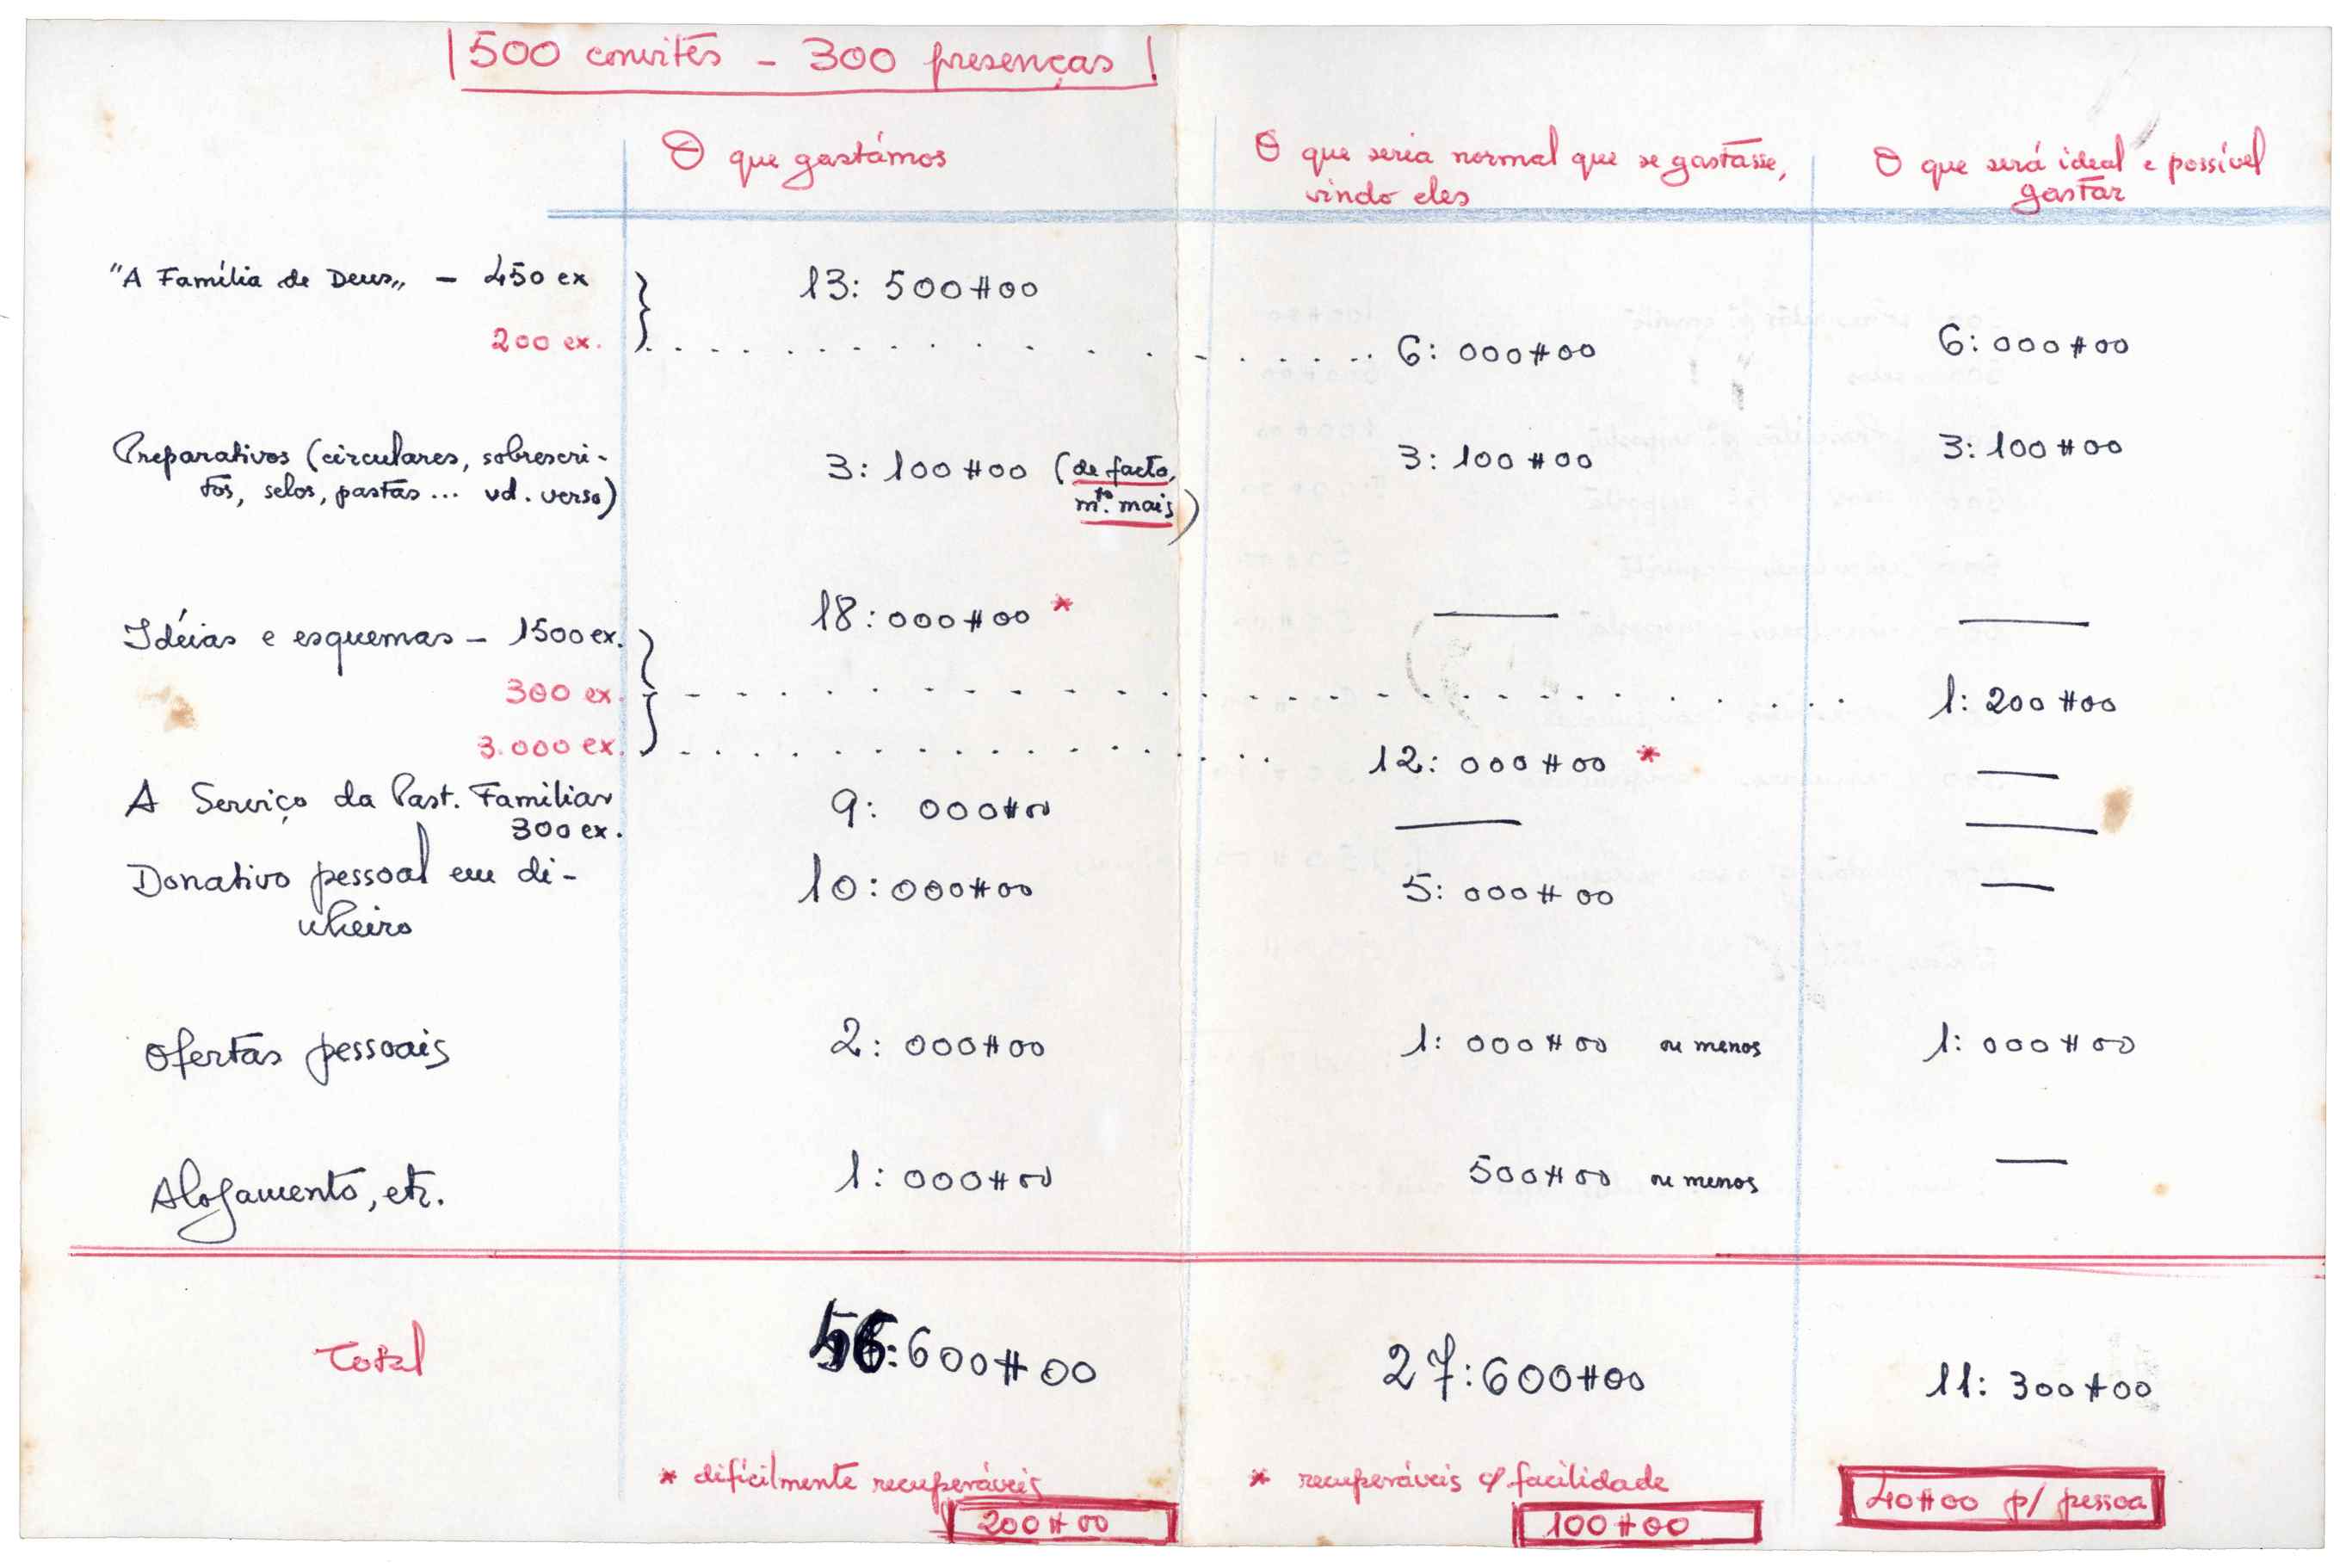 500 convites - 300 presenças!
O que gastámos
O que seria normal que se gastasse,
vindo eles
O que será ideal e possível
gastar
"A Família de Deus„ - 450 ex
13: 500#00
200 ex.
6: 000#00
6: 000#00
Preparativos (circulares, sobrescri-
tos, selos, pastas... vd. verso)
3: 100#00 (de facto,
m.to mais)
3: 100#00
3: 100#00
Idéias e esquemas - 1500 ex.
18: 000#00 *
300 ex.
1: 200#00
3.000 ex.
12: 000#00 *
A Serviço da Past. Familiar
300 ex.
9: 000#00
Donativo pessoal em di-
nheiro
10: 000#00
5: 000#00
Ofertas pessoais
2: 000#00
1: 000#00 ou menos
1: 000#00
Alojamento, etc.
1: 000#00
500#00 ou menos
Total
56:600#00
27:600#00
11: 300#00
* dificilmente recuperáveis
200#00
* recuperáveis c/ facilidade
100#00
40#00 p/ pessoa